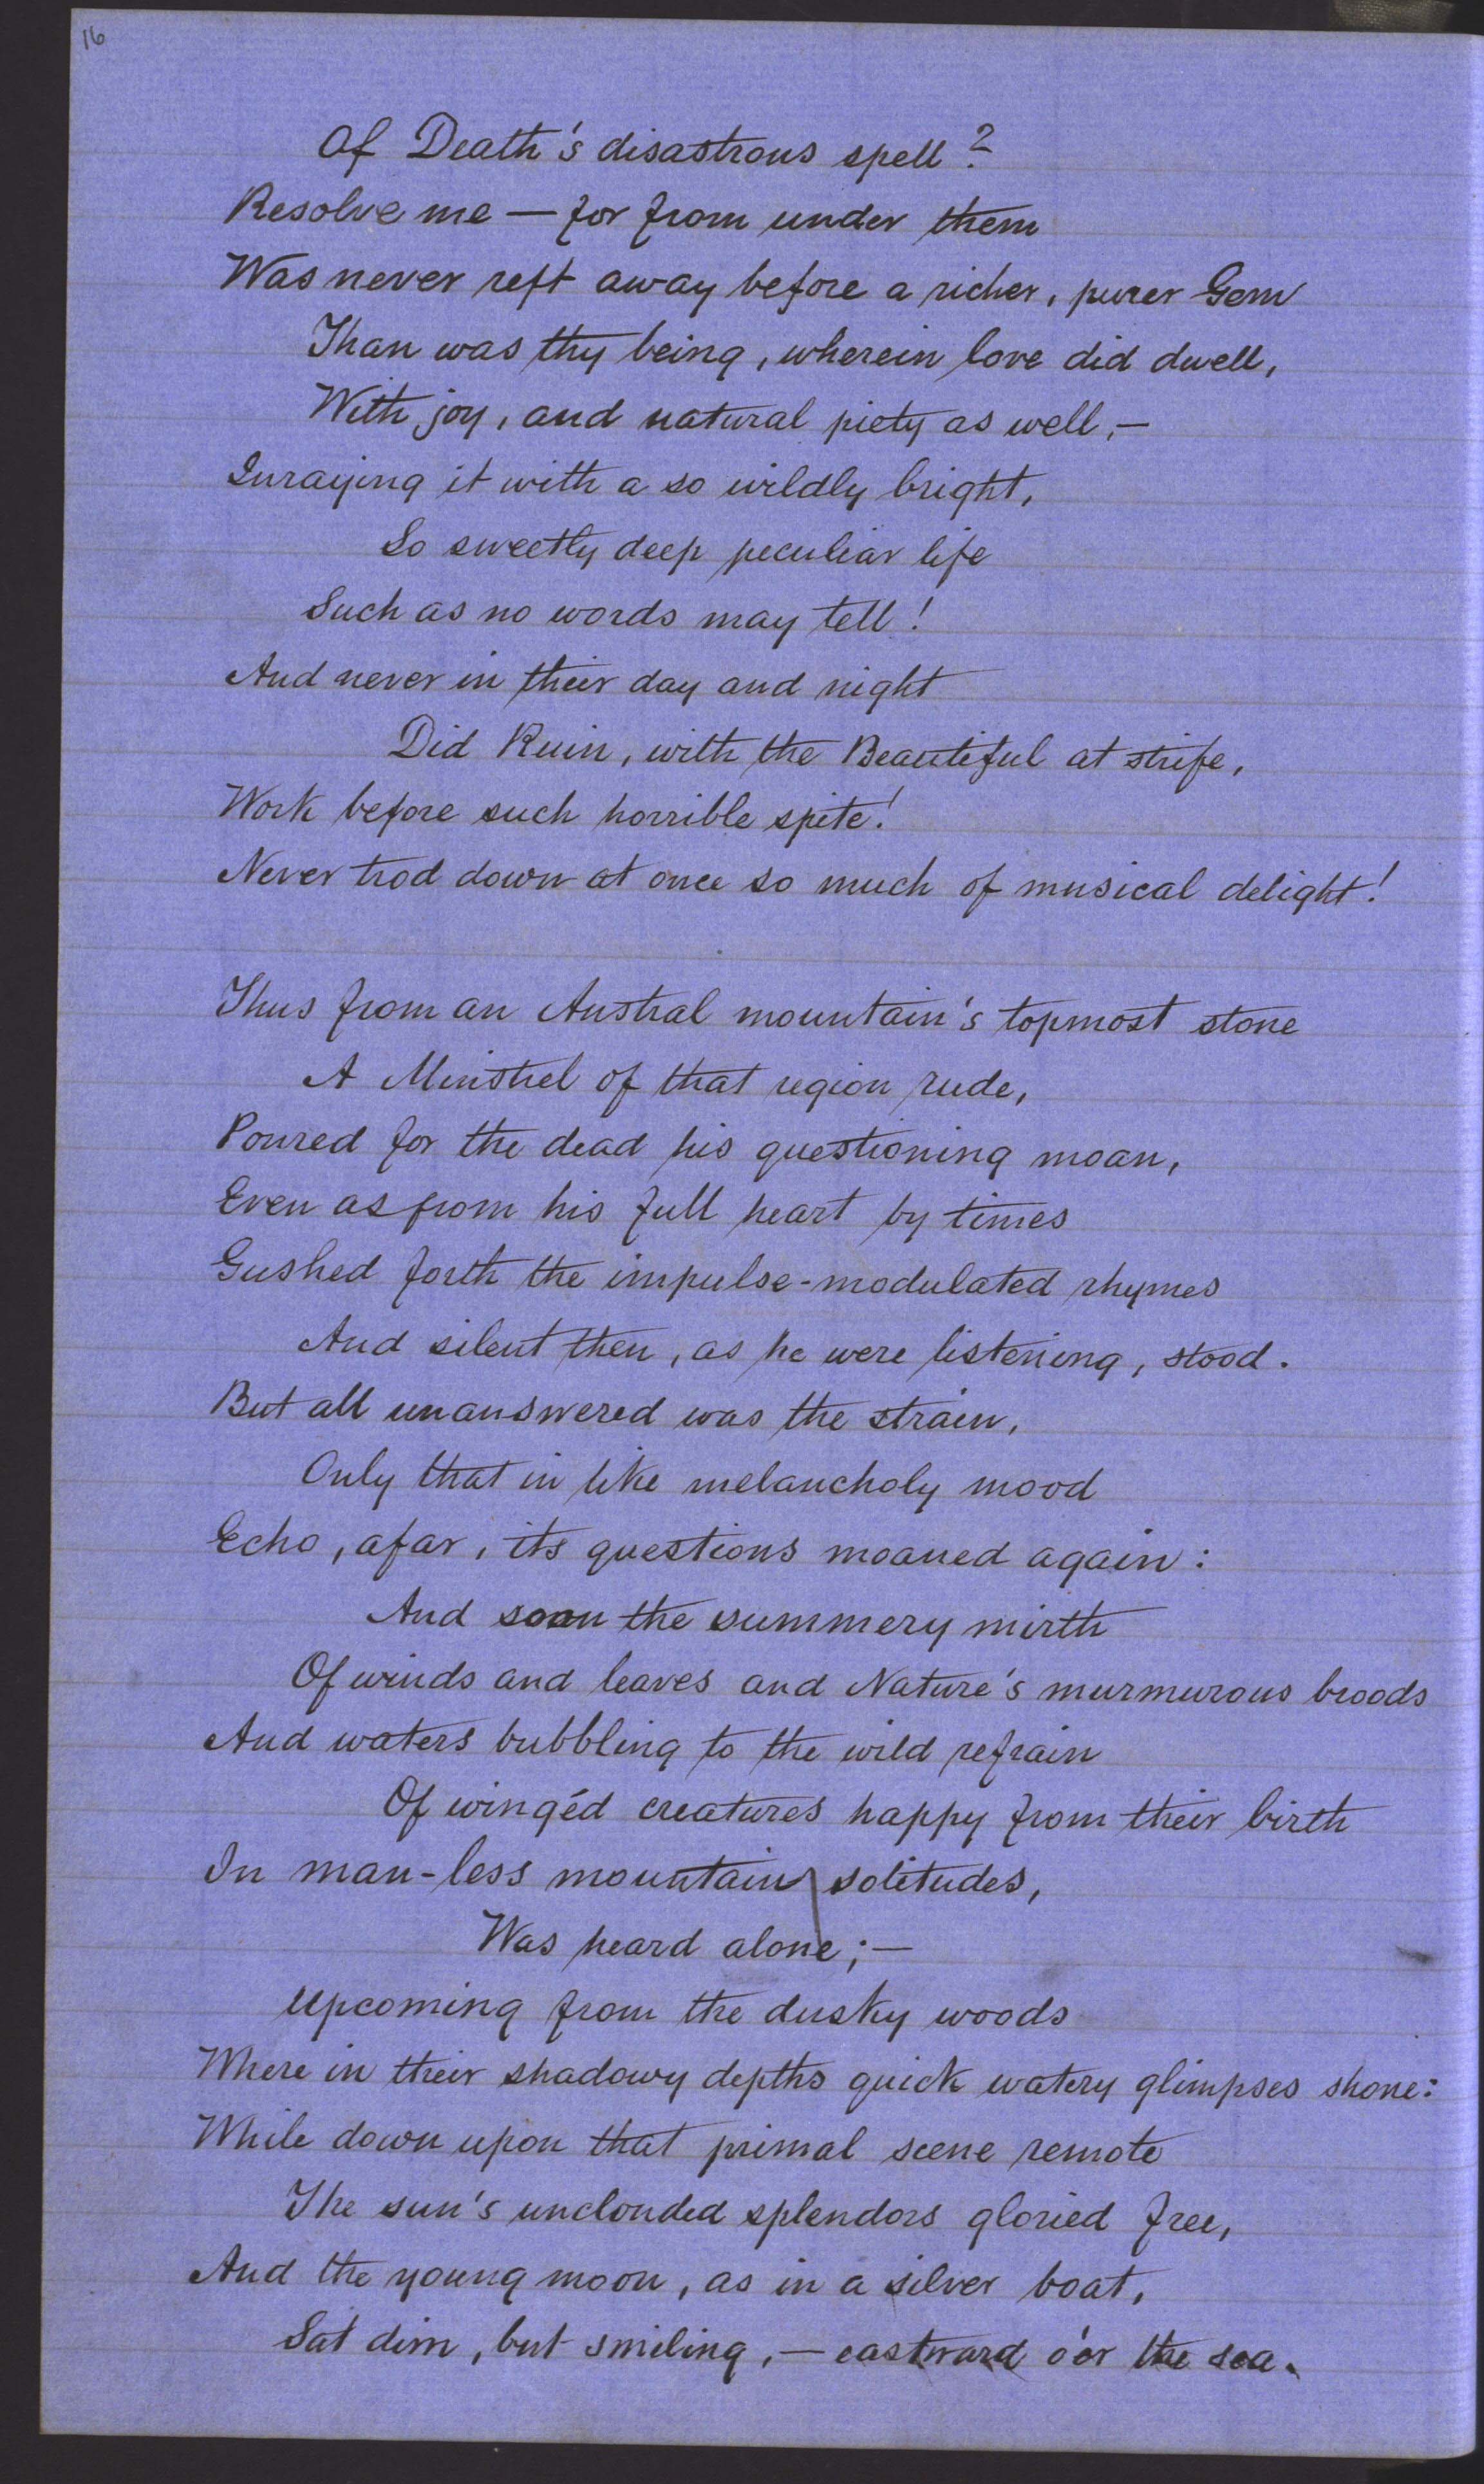 16
Of Death's disastrous spell?
Resolve me — for from under them
Was never reft away before a richer, purer Gem
Than was thy being, wherein love did dwell,
With joy, and natural piety as well,—
Inraying it with a so wildly bright,
So sweetly deep peculiar life
Such as no words may tell!
And never in their day and night
Did Ruin, with the Beautiful at strife,
Work before such horrible spite!
Never trod down at once so much of musical delight!
Thus from an Austral mountain's topmost stone
A Minstrel of that region rude,
Poured for the dead his questioning moan,
Even as from his full heart by times
Gushed forth the impulse-modulated rhymes
And silent then, as he were listening, stood.
But all unanswered was the strain,
Only that in like melancholy mood
Echo, afar, its questions moaned again:
And soon the summery mirth
Of winds and leaves and Nature's murmurous broods
And waters bubbling to the wild refrain
Of wingéd creatures happy from their birth
In man-less mountain solitudes,
Was heard alone;—
Upcoming from the dusky woods
Where in their shadowy depths quick watery glimpses shone:
While down upon that primal scene remote
The sun's unclouded splendors gloried free,
And the young moon, as in a silver boat,
Sat dim, but smiling,— eastward o'er the sea.